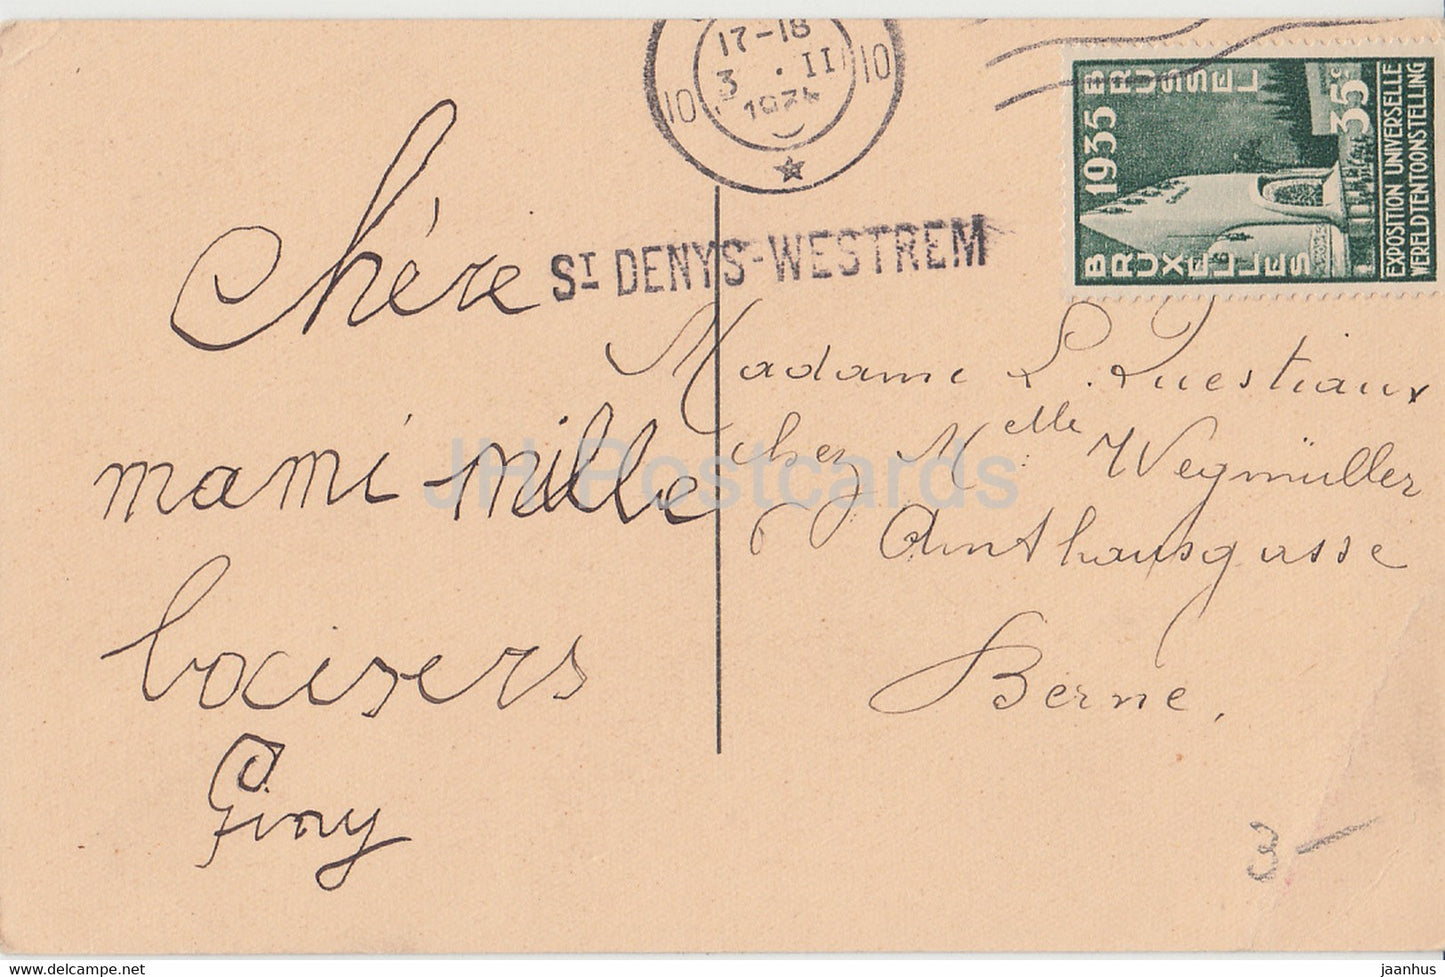 17-18
10 3 . II 10
1934
1935
BRUSSEL
BRUXELLES
35c
EXPOSITION UNIVERSELLE
WERELDTENTOONSTELLING
ST DENYS-WESTREM
Chère
mami mille
baisers
Giny
Madame L. Questiaux
chez Melle Wegmüller
6 Amthausgasse
Berne.
JH Postcards
3-
www.delcampe.net
jaanhus